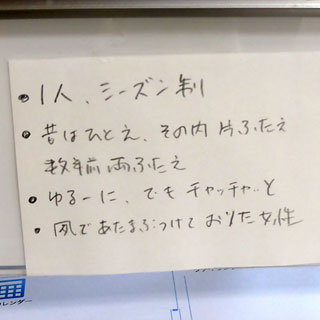 ・1人、シーズン制
・昔はひとえ、その内 片ふたえ
数年前 両ふたえ
・ゆるーに、でも チャッチャッと
・凧であたまぶつけて おりた女性
レンダー